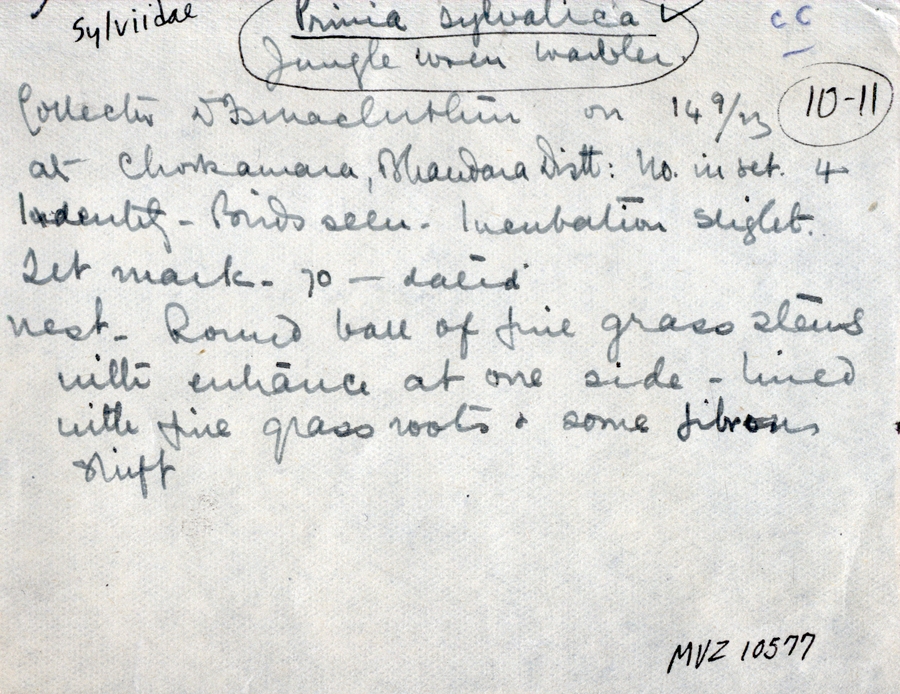 Sylviidae
Prinia sylvatica ✓
cc
Jungle wren warbler.
10-11
Collector on 14 9/23
at Chorkamara, Bhandara Distt: No. in set. 4
Indentity - Birds seen. Incubation slight.
Set mark - 70 — dated
nest - Round ball of fine grass stems
with entrance at one side - lined
with fine grass roots & some fibrous
stuff
MVZ 10577